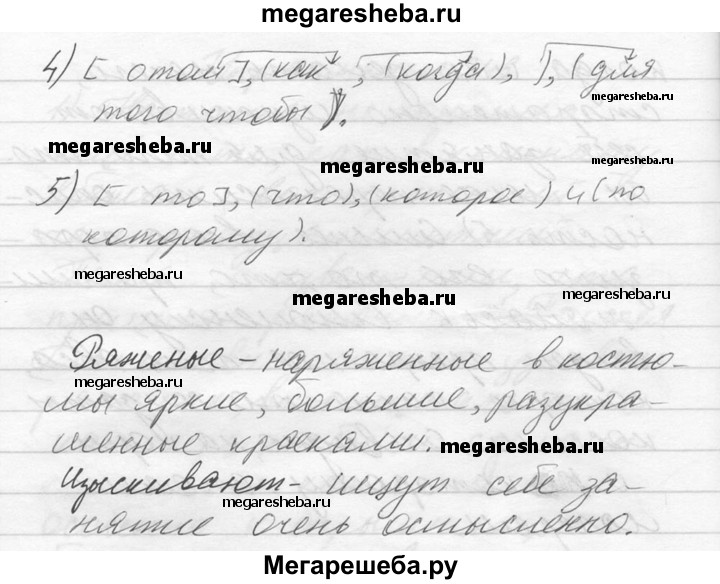 megaresheba.ru
4) [ о том ], (как , (когда), ), (для
того чтобы ).
megaresheba.ru
megaresheba.ru
megaresheba.ru
5) [ то ], (что), (которое) и (по
которому).
megaresheba.ru
megaresheba.ru
megaresheba.ru
Ряженые - наряженные в костю-
мы яркие, большие, разукра-
шенные красками.
megaresheba.ru
Изыскивают - ищут себе за-
megaresheba.ru
нятие очень осмысленно.
Мегарешеба.ру